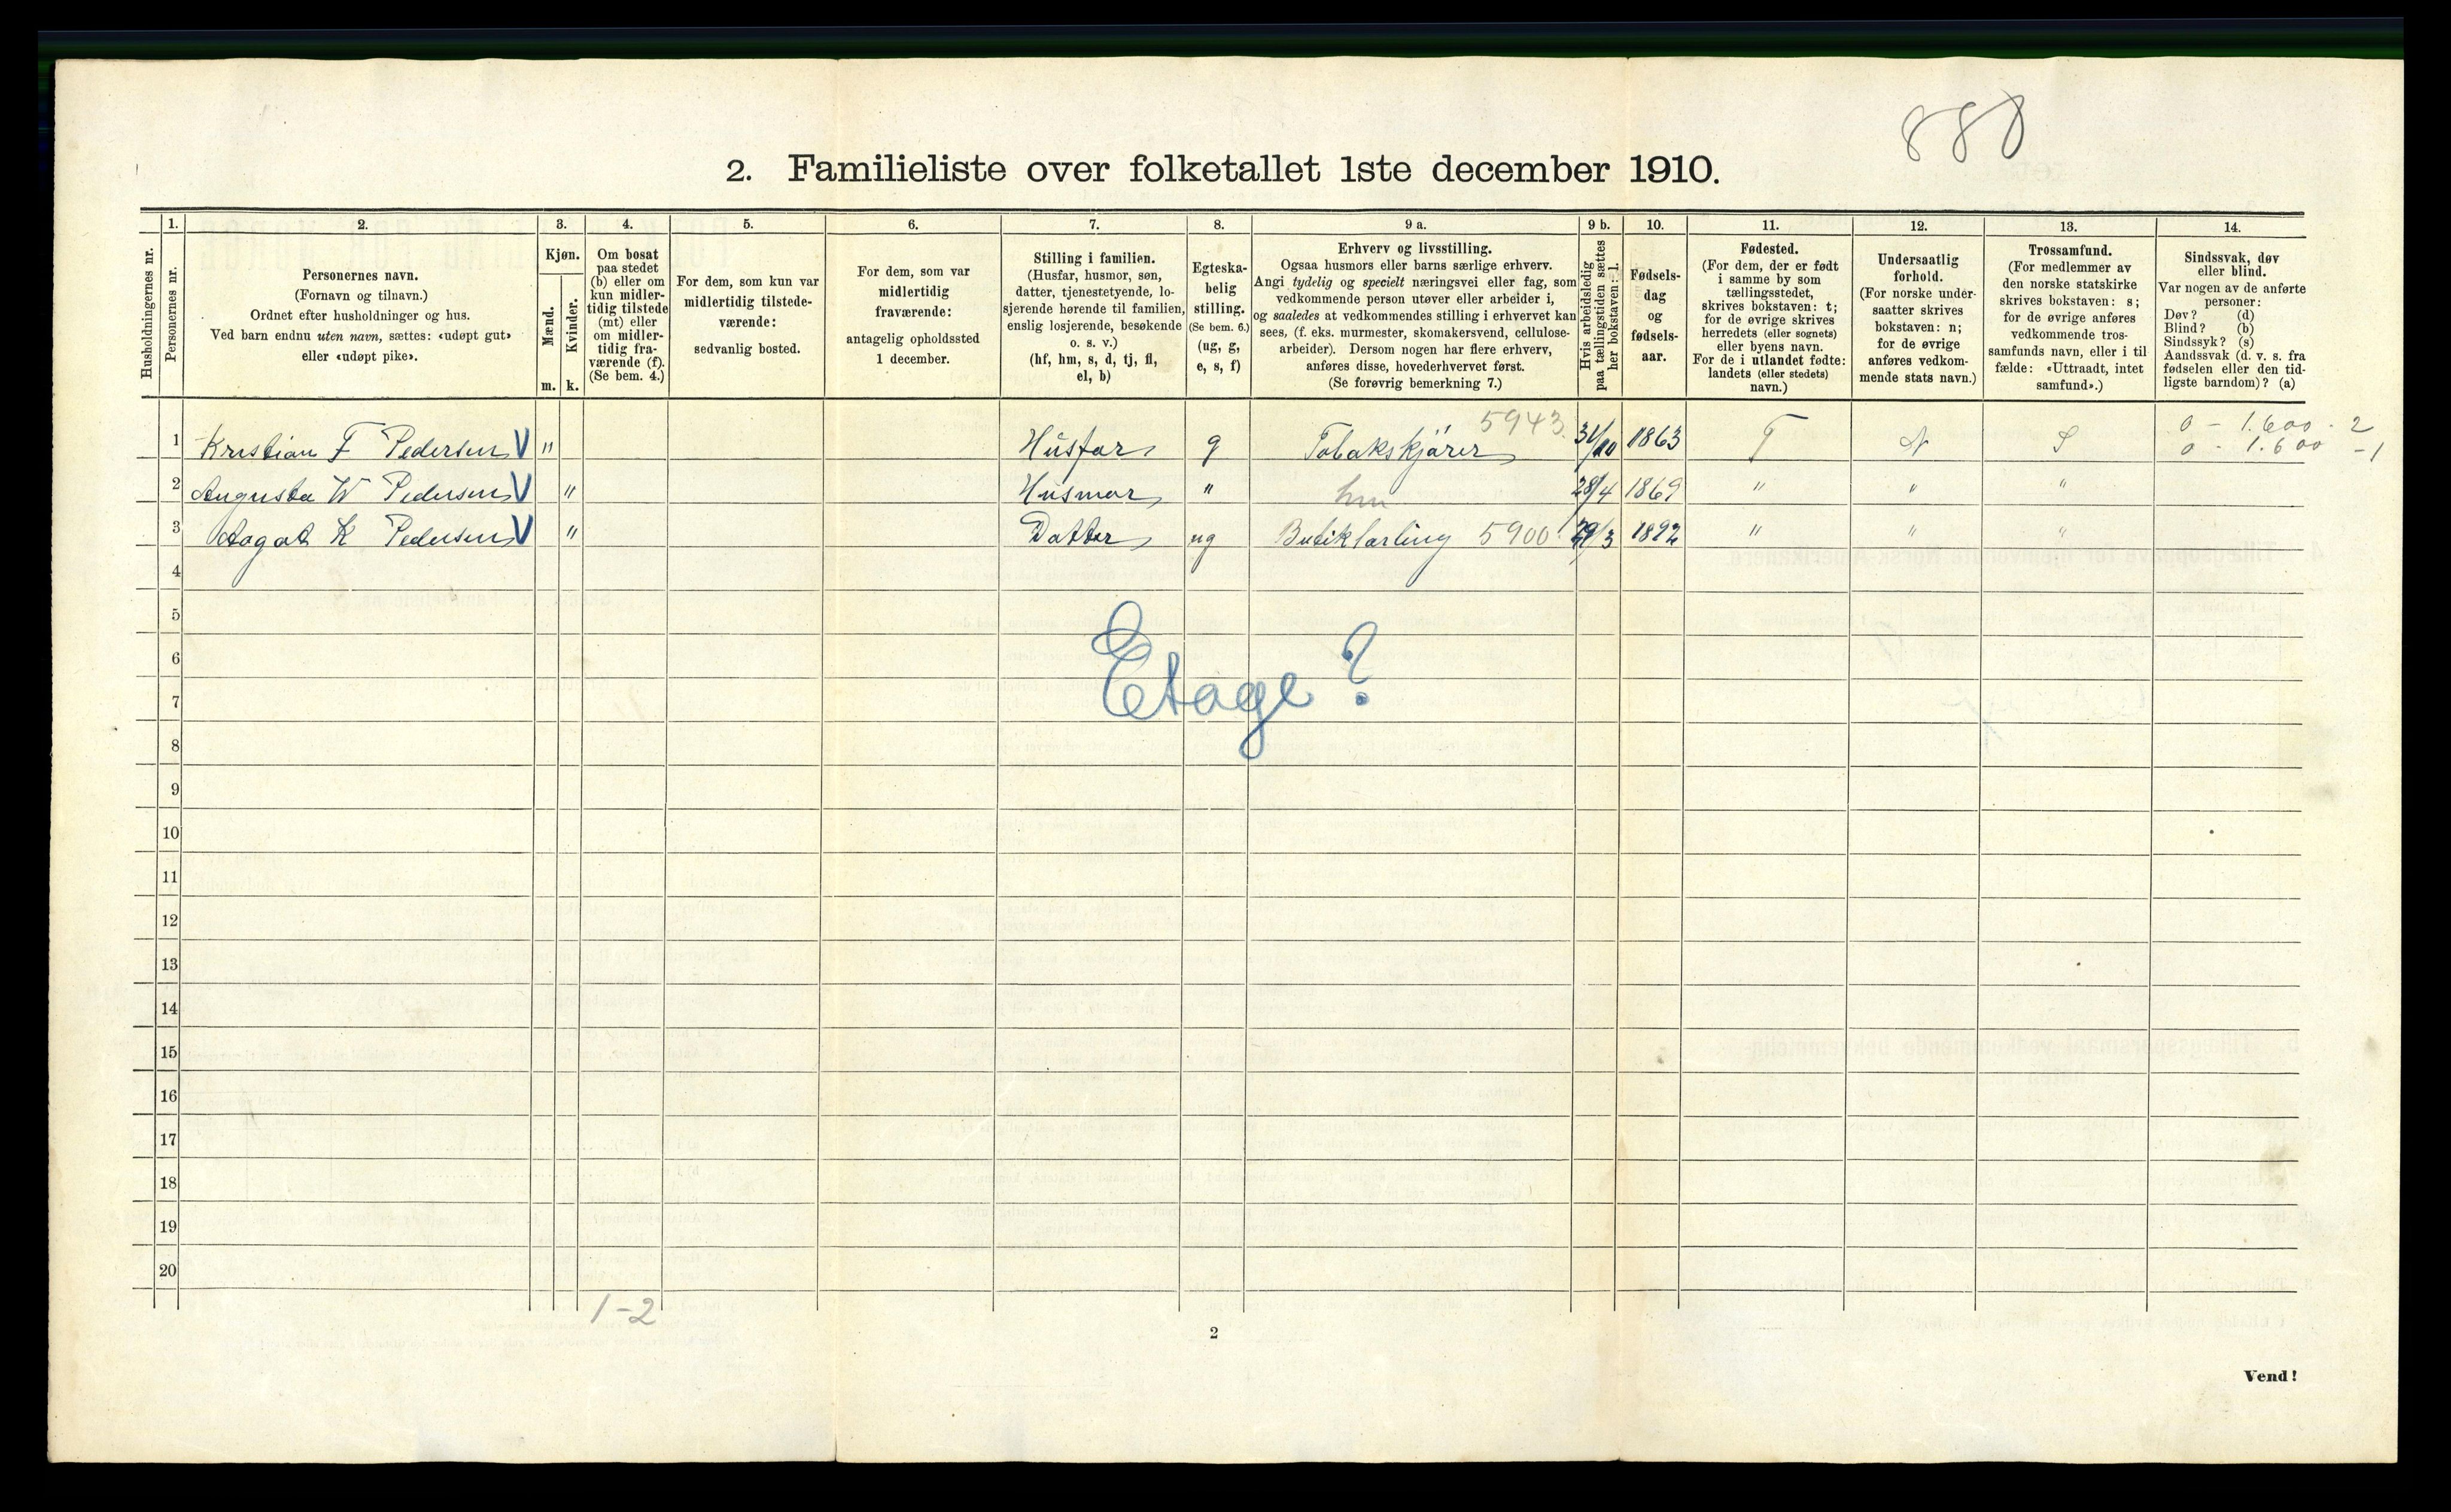 888
2. Familieliste over folketallet 1ste december 1910.
Husholdningernes nr.
1.
Personernes nr.
2.
Personernes navn.
(Fornavn og tilnavn.)
Ordnet efter husholdninger og hus.
Ved barn endnu uten navn, sættes: «udøpt gut»
eller «udøpt pike».
3.
Kjøn.
Mænd.
Kvinder.
m. k.
4.
Om bosat
paa stedet
(b) eller om
kun midler-
tidig tilstede
(mt) eller
om midler-
tidig fra-
værende (f).
(Se bem. 4.)
5.
For dem, som kun var
midlertidig tilstede-
værende:
sedvanlig bosted.
6.
For dem, som var
midlertidig
fraværende:
antagelig opholdssted
1 december.
7.
Stilling i familien.
(Husfar, husmor, søn,
datter, tjenestetyende, lo-
sjerende hørende til familien,
enslig losjerende, besøkende
o. s. v.)
(hf, hm, s, d, tj, fl,
el, b)
8.
Egteska-
belig
stilling.
(Se bem. 6.)
(ug, g,
e, s, f)
9 a.
Erhverv og livsstilling.
Ogsaa husmors eller barns særlige erhverv.
Angi tydelig og specielt næringsvei eller fag, som
vedkommende person utøver eller arbeider i,
og saaledes at vedkommendes stilling i erhvervet kan
sees, (f. eks. murmester, skomakersvend, cellulose-
arbeider). Dersom nogen har flere erhverv,
anføres disse, hovederhvervet først.
(Se forøvrig bemerkning 7.)
9 b.
Hvis arbeidsledig
paa tællingstiden sættes
her bokstaven: l.
10.
Fødsels-
dag
og
fødsels-
aar.
11.
Fødested.
(For dem, der er født
i samme by som
tællingsstedet,
skrives bokstaven: t;
for de øvrige skrives
herredets (eller sognets)
eller byens navn.
For de i utlandet fødte:
landets (eller stedets)
navn.)
12.
Undersaatlig
forhold.
(For norske under-
saatter skrives
bokstaven: n;
for de øvrige
anføres vedkom-
mende stats navn.)
13.
Trossamfund.
(For medlemmer av
den norske statskirke
skrives bokstaven: s;
for de øvrige anføres
vedkommende tros-
samfunds navn, eller i til
fælde: «Uttraadt, intet
samfund».)
14.
Sindssvak, døv
eller blind.
Var nogen av de anførte
personer:
Døv? (d)
Blind? (b)
Sindssyk? (s)
Aandssvak (d. v. s. fra
fødselen eller den tid-
ligste barndom)? (a)
1 Kristian F Pedersen V " Husfar g Tobakskjører 5943 /10 1863 T N S 0 - 1.600 - 2
0 - 1.600 - 1
2 Augusta W Pedersen V " Husmor " hm 28/4 1869 " " "
3 Aagot K Pedersen V " Datter ug Butiklærling 5900 /3 1892 " " "
4
5
Etage?
6
7
8
9
10
11
12
13
14
15
16
17
18
19
20
1-2
2
Vend!